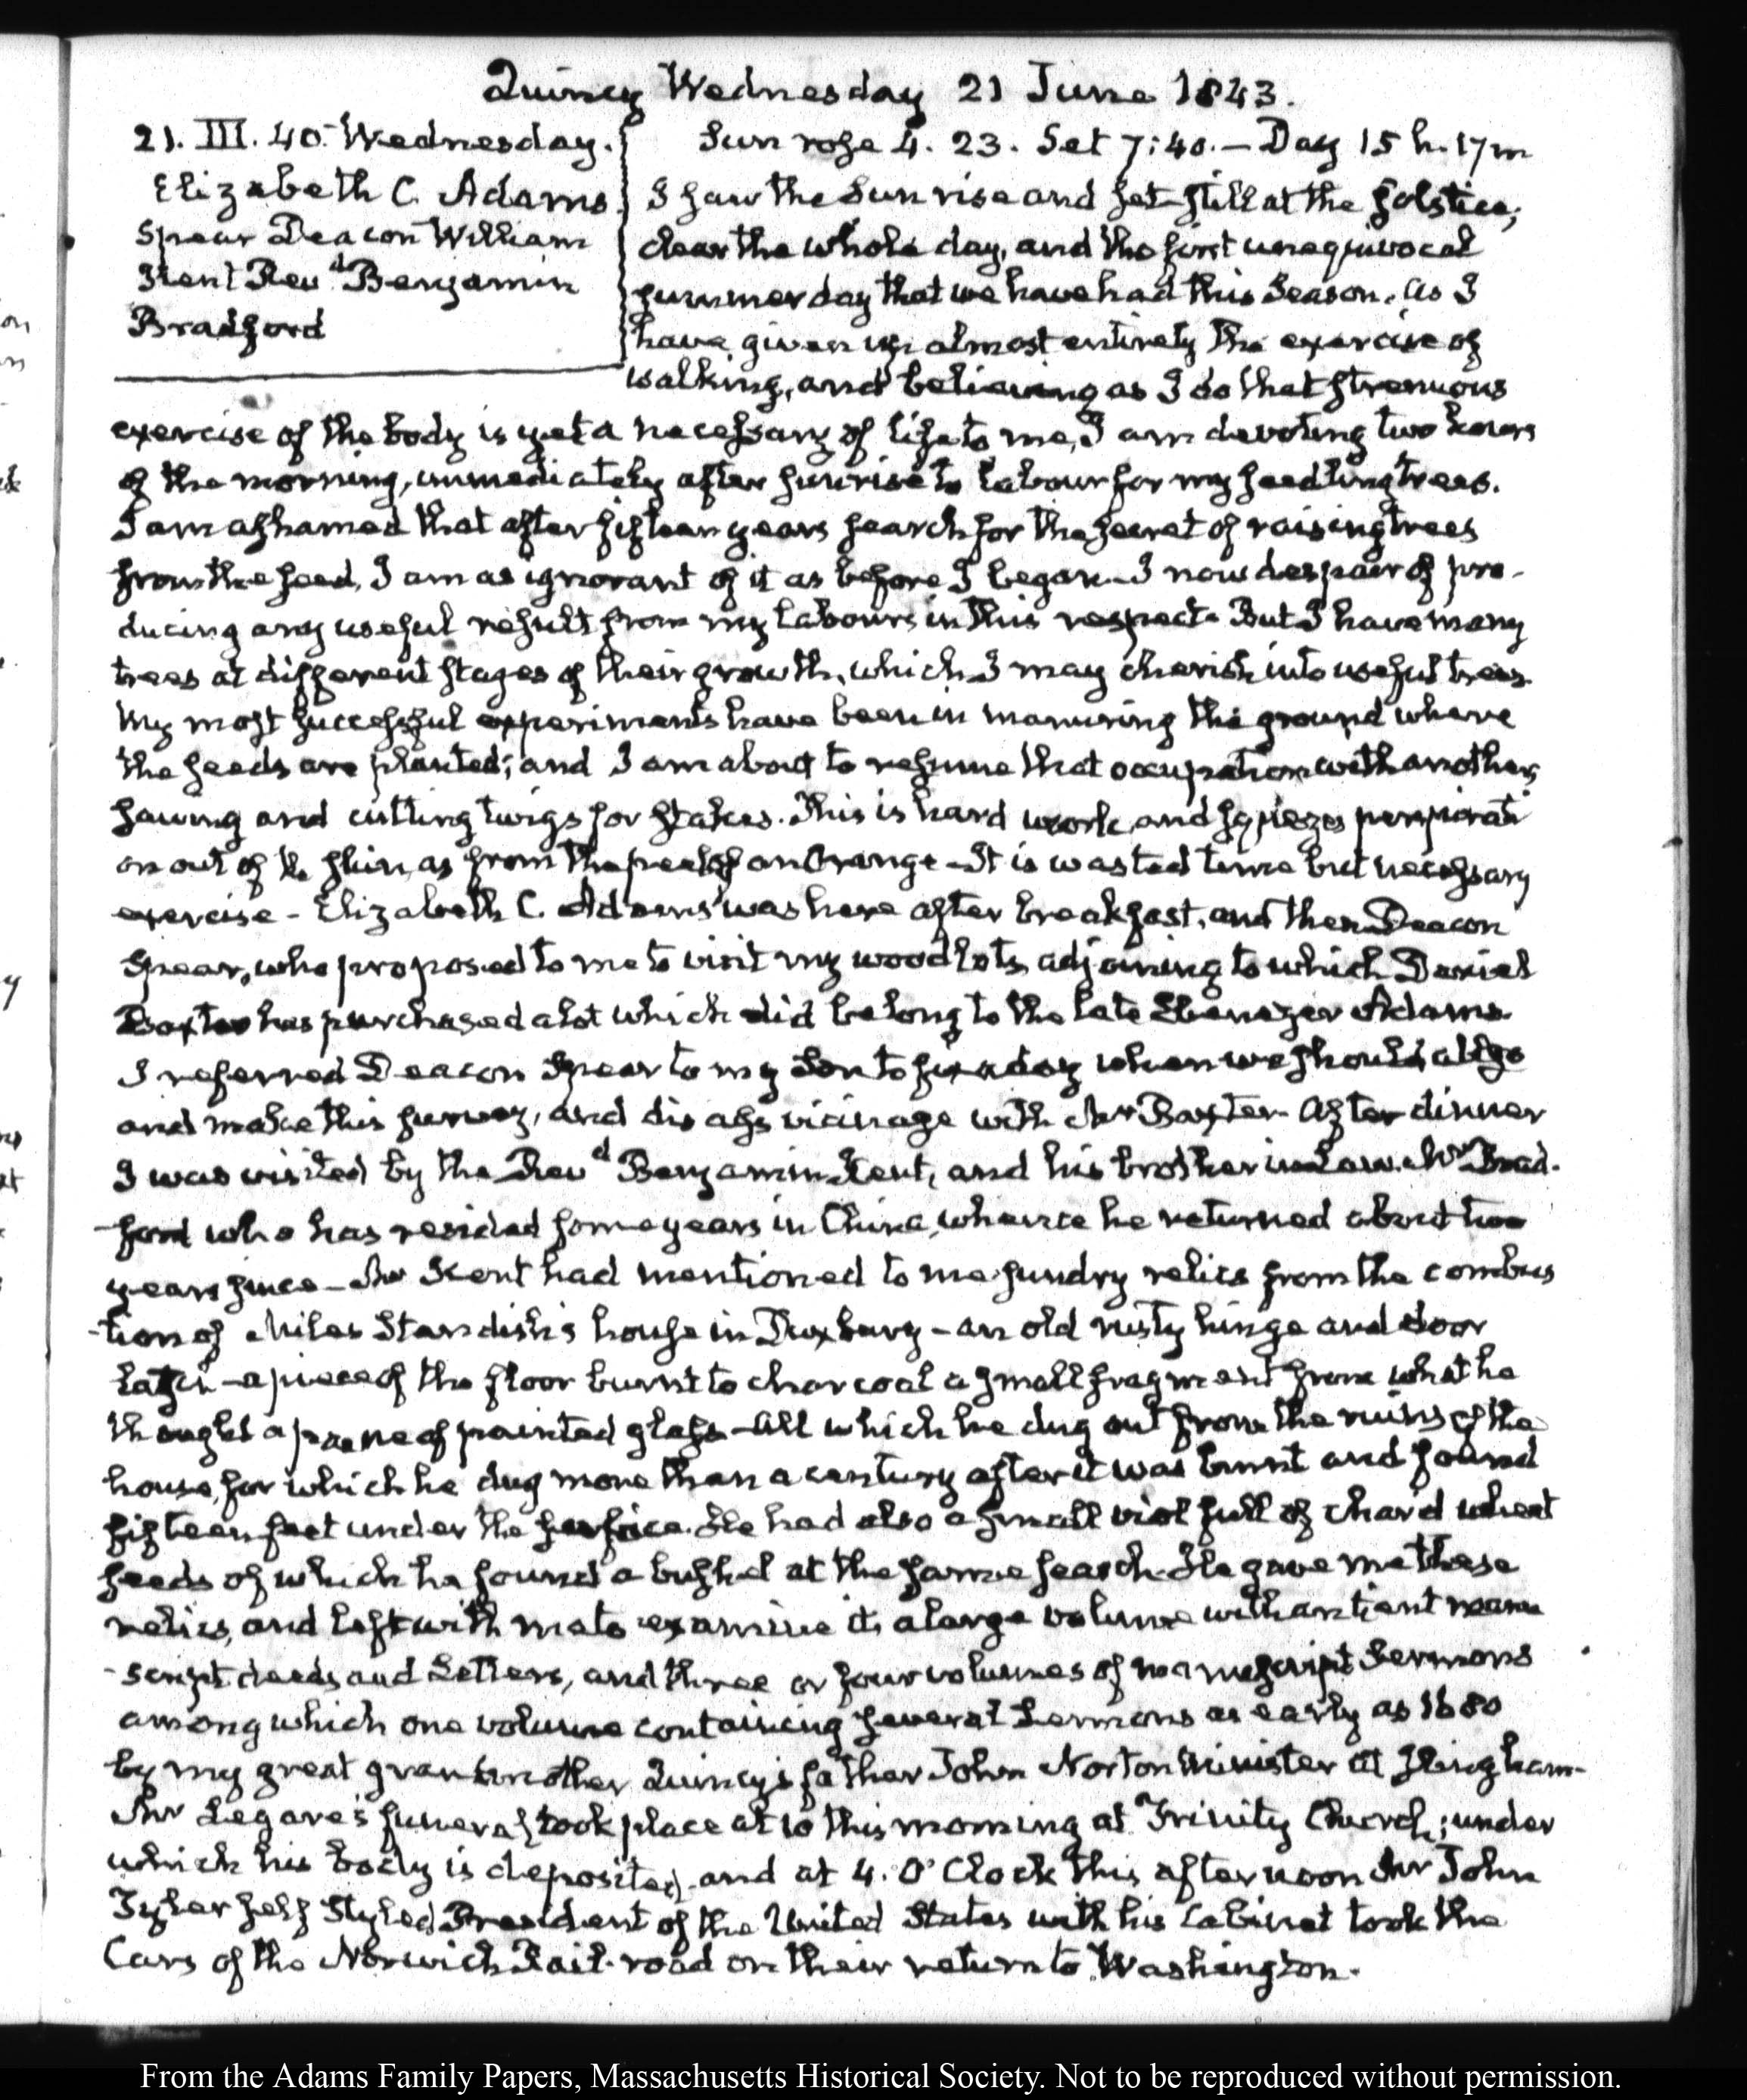 Quincy Wednesday 21 June 1843.
21. III. 40. Wednesday.
Elizabeth C. Adams
Spear Deacon William
Kent Revd Benjamin
Bradford
Sun rose 4. 23. Set 7:40. — Day 15 h. 17 m
I saw the Sun rise and set still at the solstice;
clear the whole day, and the first unequivocal
summer day that we have had this Season. As I
have given up almost entirely the exercise of
walking, and believing as I do that strenuous
exercise of the body is yet a necessary of life to me, I am devoting two hours
of the morning, immediately after sunrise to labour for my seedling trees.
I am ashamed that after fifteen years search for the secret of raising trees
from the seed, I am as ignorant of it as before I began. I now despair of pro-
ducing any useful result from my labours in this respect. But I have many
trees at different stages of their growth, which I may cherish into useful trees.
My most successful experiments have been in manuring the ground where
the seeds are planted; and I am about to resume that occupation with another,
sawing and cutting twigs for stakes. This is hard work, and squeezes perspirati
on out of the skin, as from the peel of an Orange - It is wasted time but necessary
exercise - Elizabeth C. Adams was here after breakfast, and then Deacon
Spear, who proposed to me to visit my wood lots, adjoining to which Daniel
Baxter has purchased a lot which did belong to the late Ebenezer Adams.
I referred Deacon Spear to my Son to fix a day when we should all go
and make this survey, and discuss vicinage with Mr Baxter. After dinner
I was visited by the Revd Benjamin Kent, and his brother in Law. Mr Brad-
-ford who has resided some years in China, whence he returned about two
years since - Mr Kent had mentioned to me sundry relics from the combus
-tion of Miles Standish's house in Duxbury - an old rusty hinge and door
latch - a piece of the floor burnt to charcoal a small fragment from what he
thought a pane of painted glass - All which he dug out from the ruins of the
house, for which he dug more than a century after it was burnt and found
fifteen feet under the surface. He had also a small viol full of char'd wheat
seeds of which he found a bushel at the same search. He gave me these
relics, and left with me to examine it, a large volume with antient manu
-script deeds and Letters, and three or four volumes of manuscript Sermons
among which one volume containing several Sermons as early as 1680
by my great grandmother Quincy's father John Norton Minister at Hingham-
Mr Legare's funeral took place at 10 this morning at Trinity Church; under
which his body is deposited, and at 4. O'Clock this afternoon Mr John
Tyler self Styled President of the United States with his Cabinet took the
Cars of the Norwich Rail-road on their return to Washington.
From the Adams Family Papers, Massachusetts Historical Society. Not to be reproduced without permission.